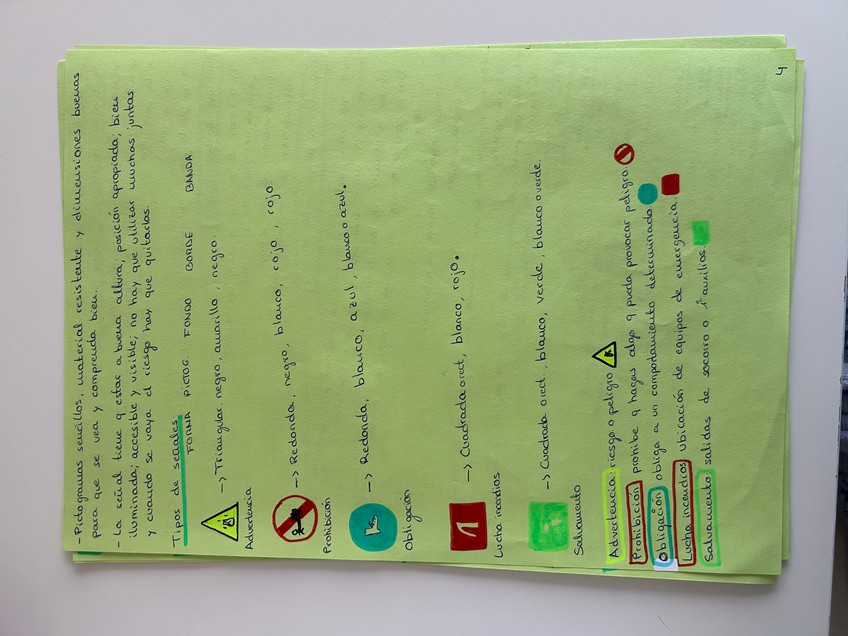 - Pictogramas sencillos, material resistente y dimensiones buenas
para que se vea y comprenda bien.
- La señal tiene q estar a buena altura; posición apropiada; bien
iluminada; accesible y visible; no hay que utilizar muchas juntas
y cuando se vaya el riesgo hay que quitarlas.
Tipos de señales
FORMA PICTOG FONDO BORDE BANDA
Advertencia -> Triangular, negro, amarillo, negro.
Prohibición -> Redonda, negro, blanco, rojo, rojo
Obligación -> Redonda, blanco, azul, blanco o azul.
Lucha incendios -> Cuadrada o rect, blanco, rojo.
Salvamento -> Cuadrada o rect, blanco, verde, blanco o verde.
Advertencia: riesgo o peligro
Prohibición prohibe q hagas algo q pueda provocar peligro.
Obligación obliga a un comportamiento determinado.
Lucha incendios ubicación de equipos de emergencia.
Salvamento salidas de socorro o 1º auxilios.
4